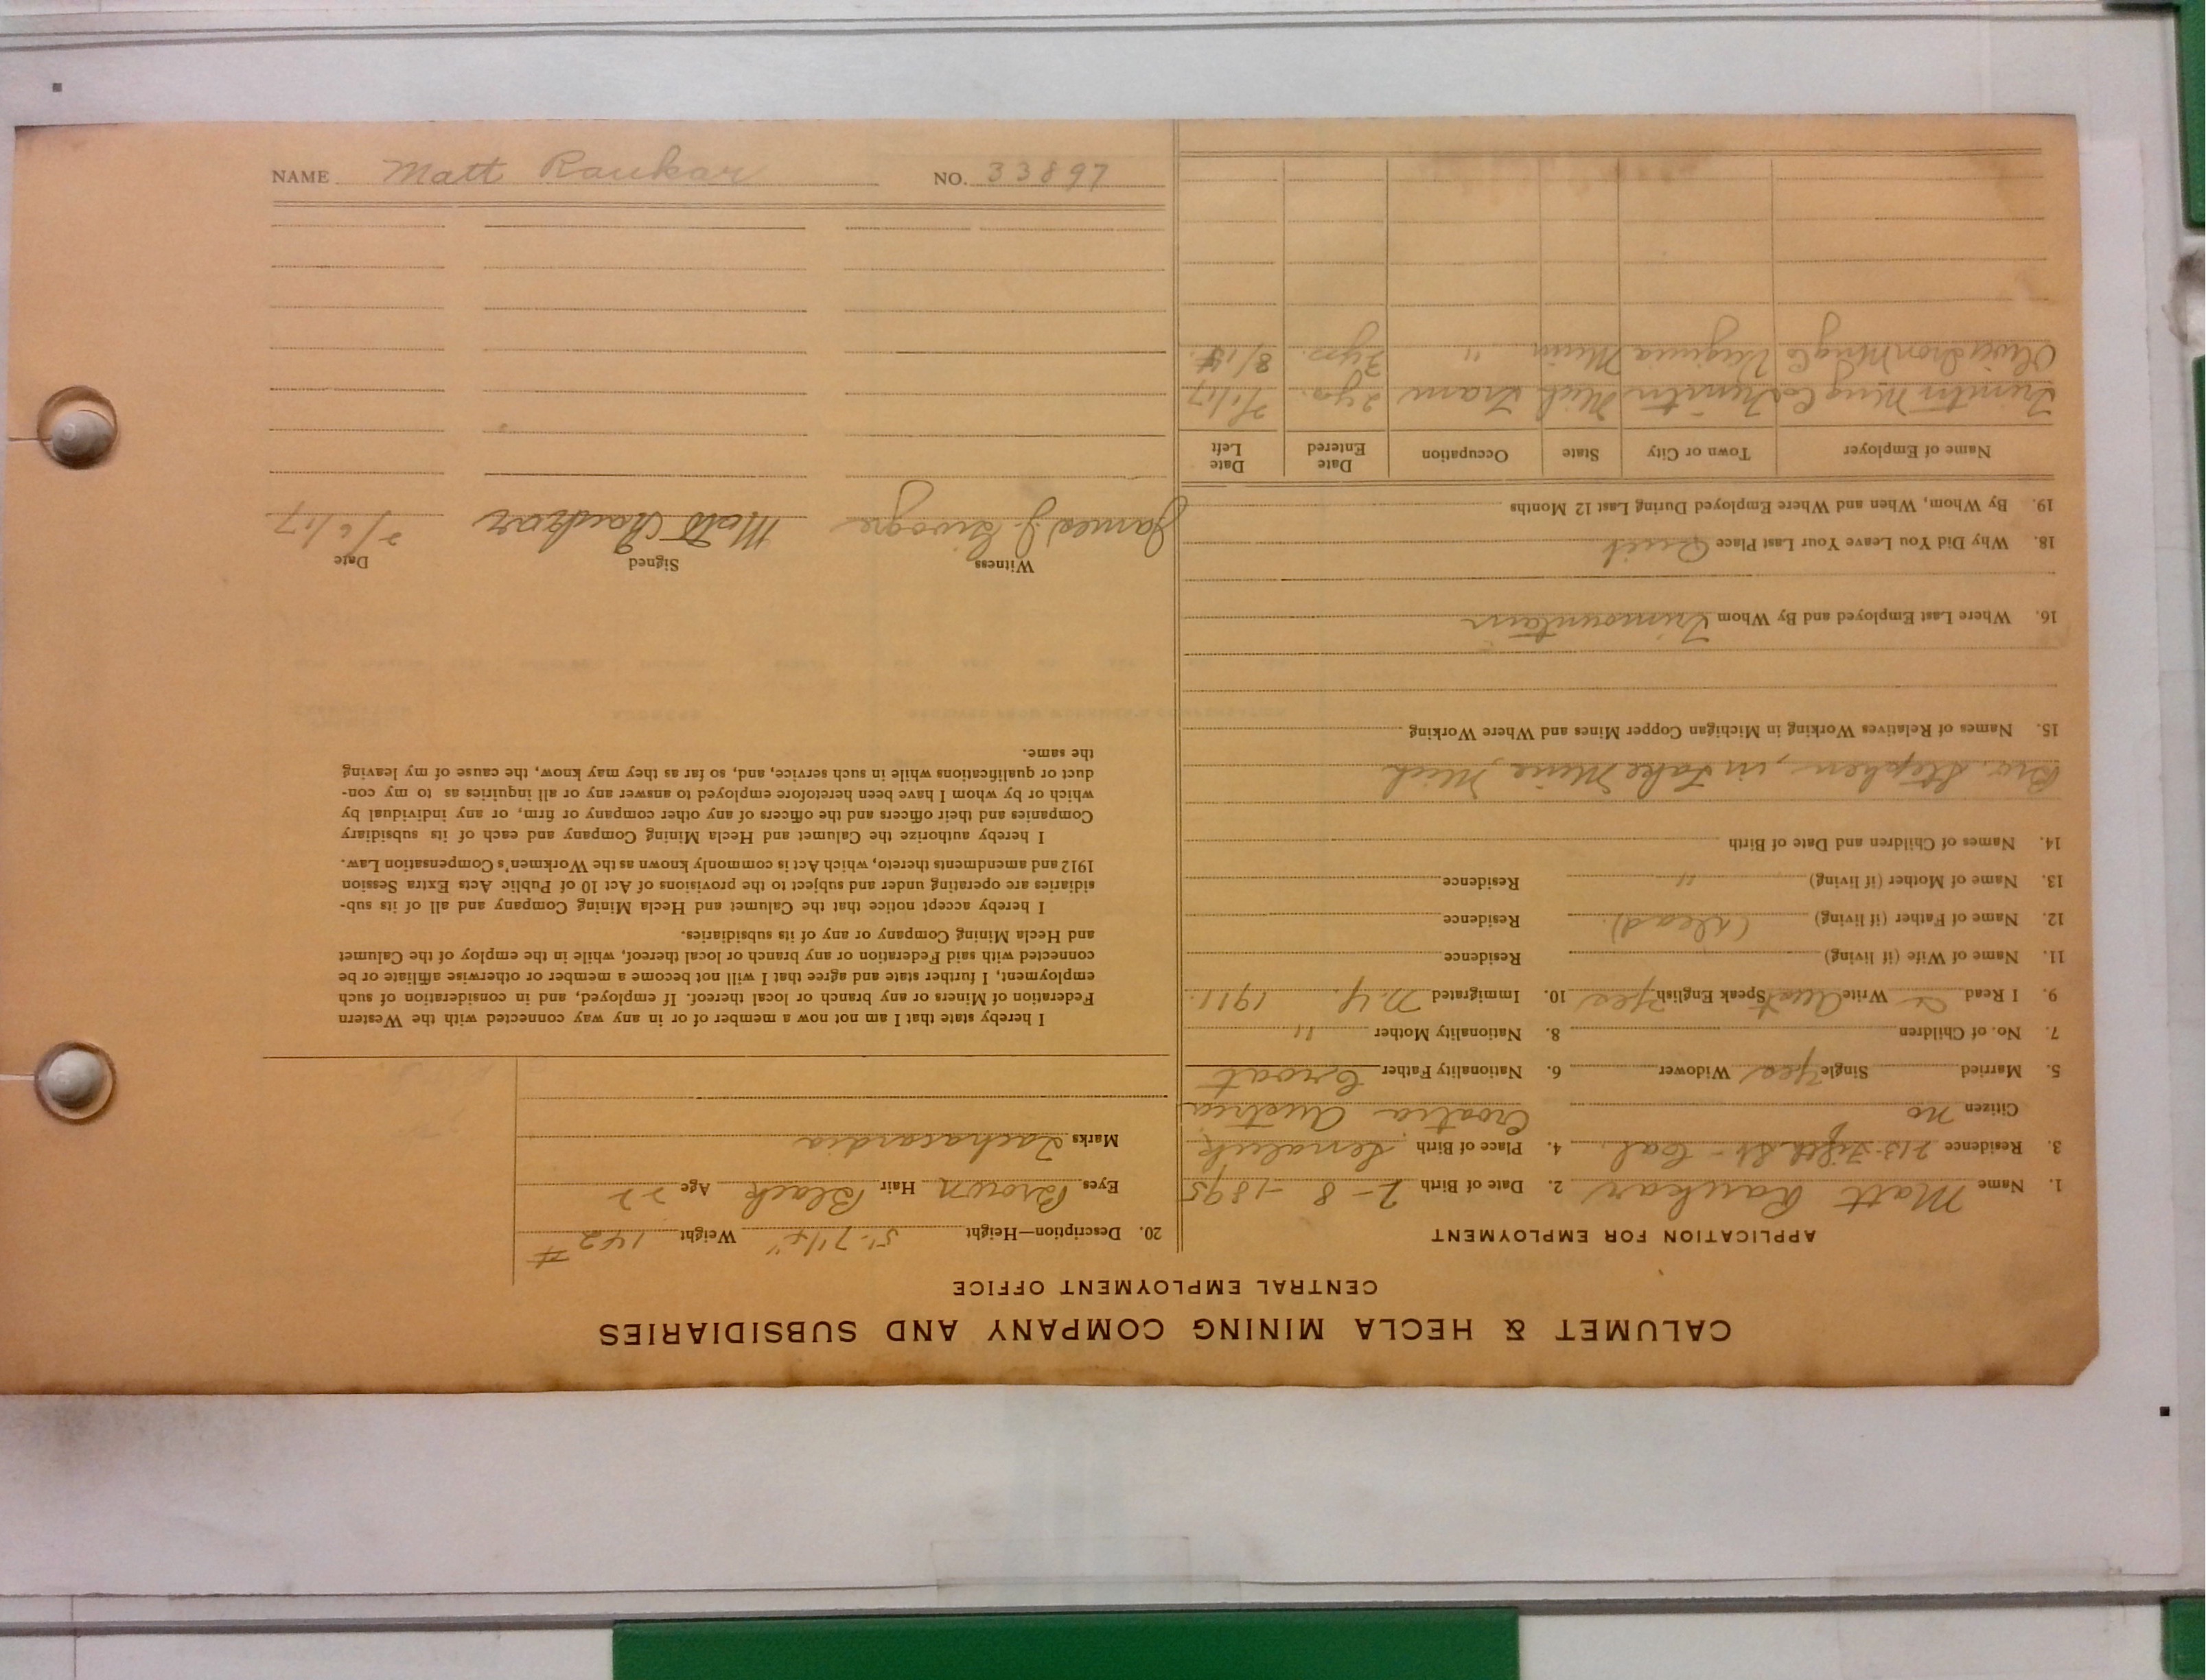 CALUMET & HECLA MINING COMPANY AND SUBSIDIARIES
CENTRAL EMPLOYMENT OFFICE
APPLICATION FOR EMPLOYMENT
1. Name Matt Raukar 2. Date of Birth 2-8-1895
3. Residence 713 Fifth St - Cal. 4. Place of Birth
Citizen no Croatia Austria
5. Married Single yes Widower 6. Nationality Father Croat
7. No. of Children 8. Nationality Mother "
9. I Read Write Aust Speak English yes 10. Immigrated N.Y. 1911.
11. Name of Wife (if living) Residence
12. Name of Father (if living) (dead) Residence
13. Name of Mother (if living) " Residence
14. Names of Children and Date of Birth
Bro. Stephen, in Lake Mine, Mich
15. Names of Relatives Working in Michigan Copper Mines and Where Working
16. Where Last Employed and By Whom Trimountain
18. Why Did You Leave Your Last Place Quit
19. By Whom, When and Where Employed During Last 12 Months
Name of Employer Town or City State Occupation Date Entered Date Left
Trimtn Mng Co Trimtn Mich Tram 2 yrs. 2/1/17
Oliver Iron Mng Co Virginia Minn " 3 yrs. 8/14.
20. Description—Height 5'-7 1/4" Weight 142 #
Eyes Brown Hair Black Age 22
Marks
I hereby state that I am not now a member of or in any way connected with the Western
Federation of Miners or any branch or local thereof. If employed, and in consideration of such
employment, I further state and agree that I will not become a member or otherwise affiliate or be
connected with said Federation or any branch or local thereof, while in the employ of the Calumet
and Hecla Mining Company or any of its subsidiaries.
I hereby accept notice that the Calumet and Hecla Mining Company and all of its sub-
sidiaries are operating under and subject to the provisions of Act 10 of Public Acts Extra Session
1912 and amendments thereto, which Act is commonly known as the Workmen's Compensation Law.
I hereby authorize the Calumet and Hecla Mining Company and each of its subsidiary
Companies and their officers and the officers of any other company or firm, or any individual by
which or by whom I have been heretofore employed to answer any or all inquiries as to my con-
duct or qualifications while in such service, and, so far as they may know, the cause of my leaving
the same.
Witness Signed Date
James J. Matt Raukar 2/6/17
NAME Matt Raukar NO. 33897